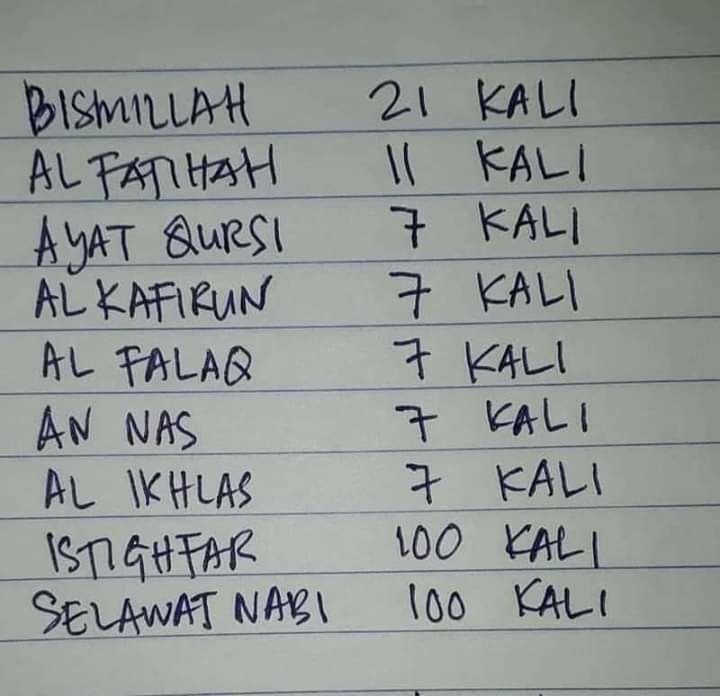 BISMILLAH 21 KALI
AL FATIHAH 11 KALI
AYAT QURSI 7 KALI
AL KAFIRUN 7 KALI
AL FALAQ 7 KALI
AN NAS 7 KALI
AL IKHLAS 7 KALI
ISTIGHFAR 100 KALI
SELAWAT NABI 100 KALI